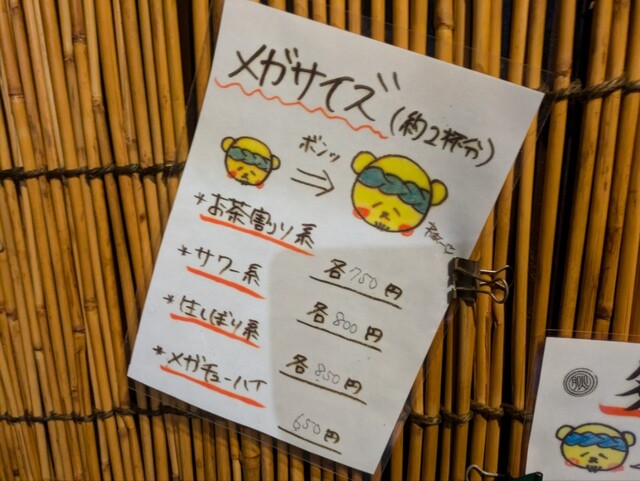 メガサイズ
(約2杯分)
ボンッ
*お茶割り系
各750円
*サワー系
各800円
*生しぼり系
各850円
*メガチューハイ
650円